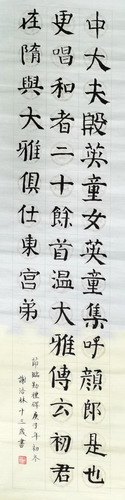 中大夫殷英童女英童集呼顔郎是也
更唱和者二十餘首温大雅傳云初君
在隋與大雅俱仕東宮弟
節臨勤禮碑庚子年初冬
謝浴林十三歲書